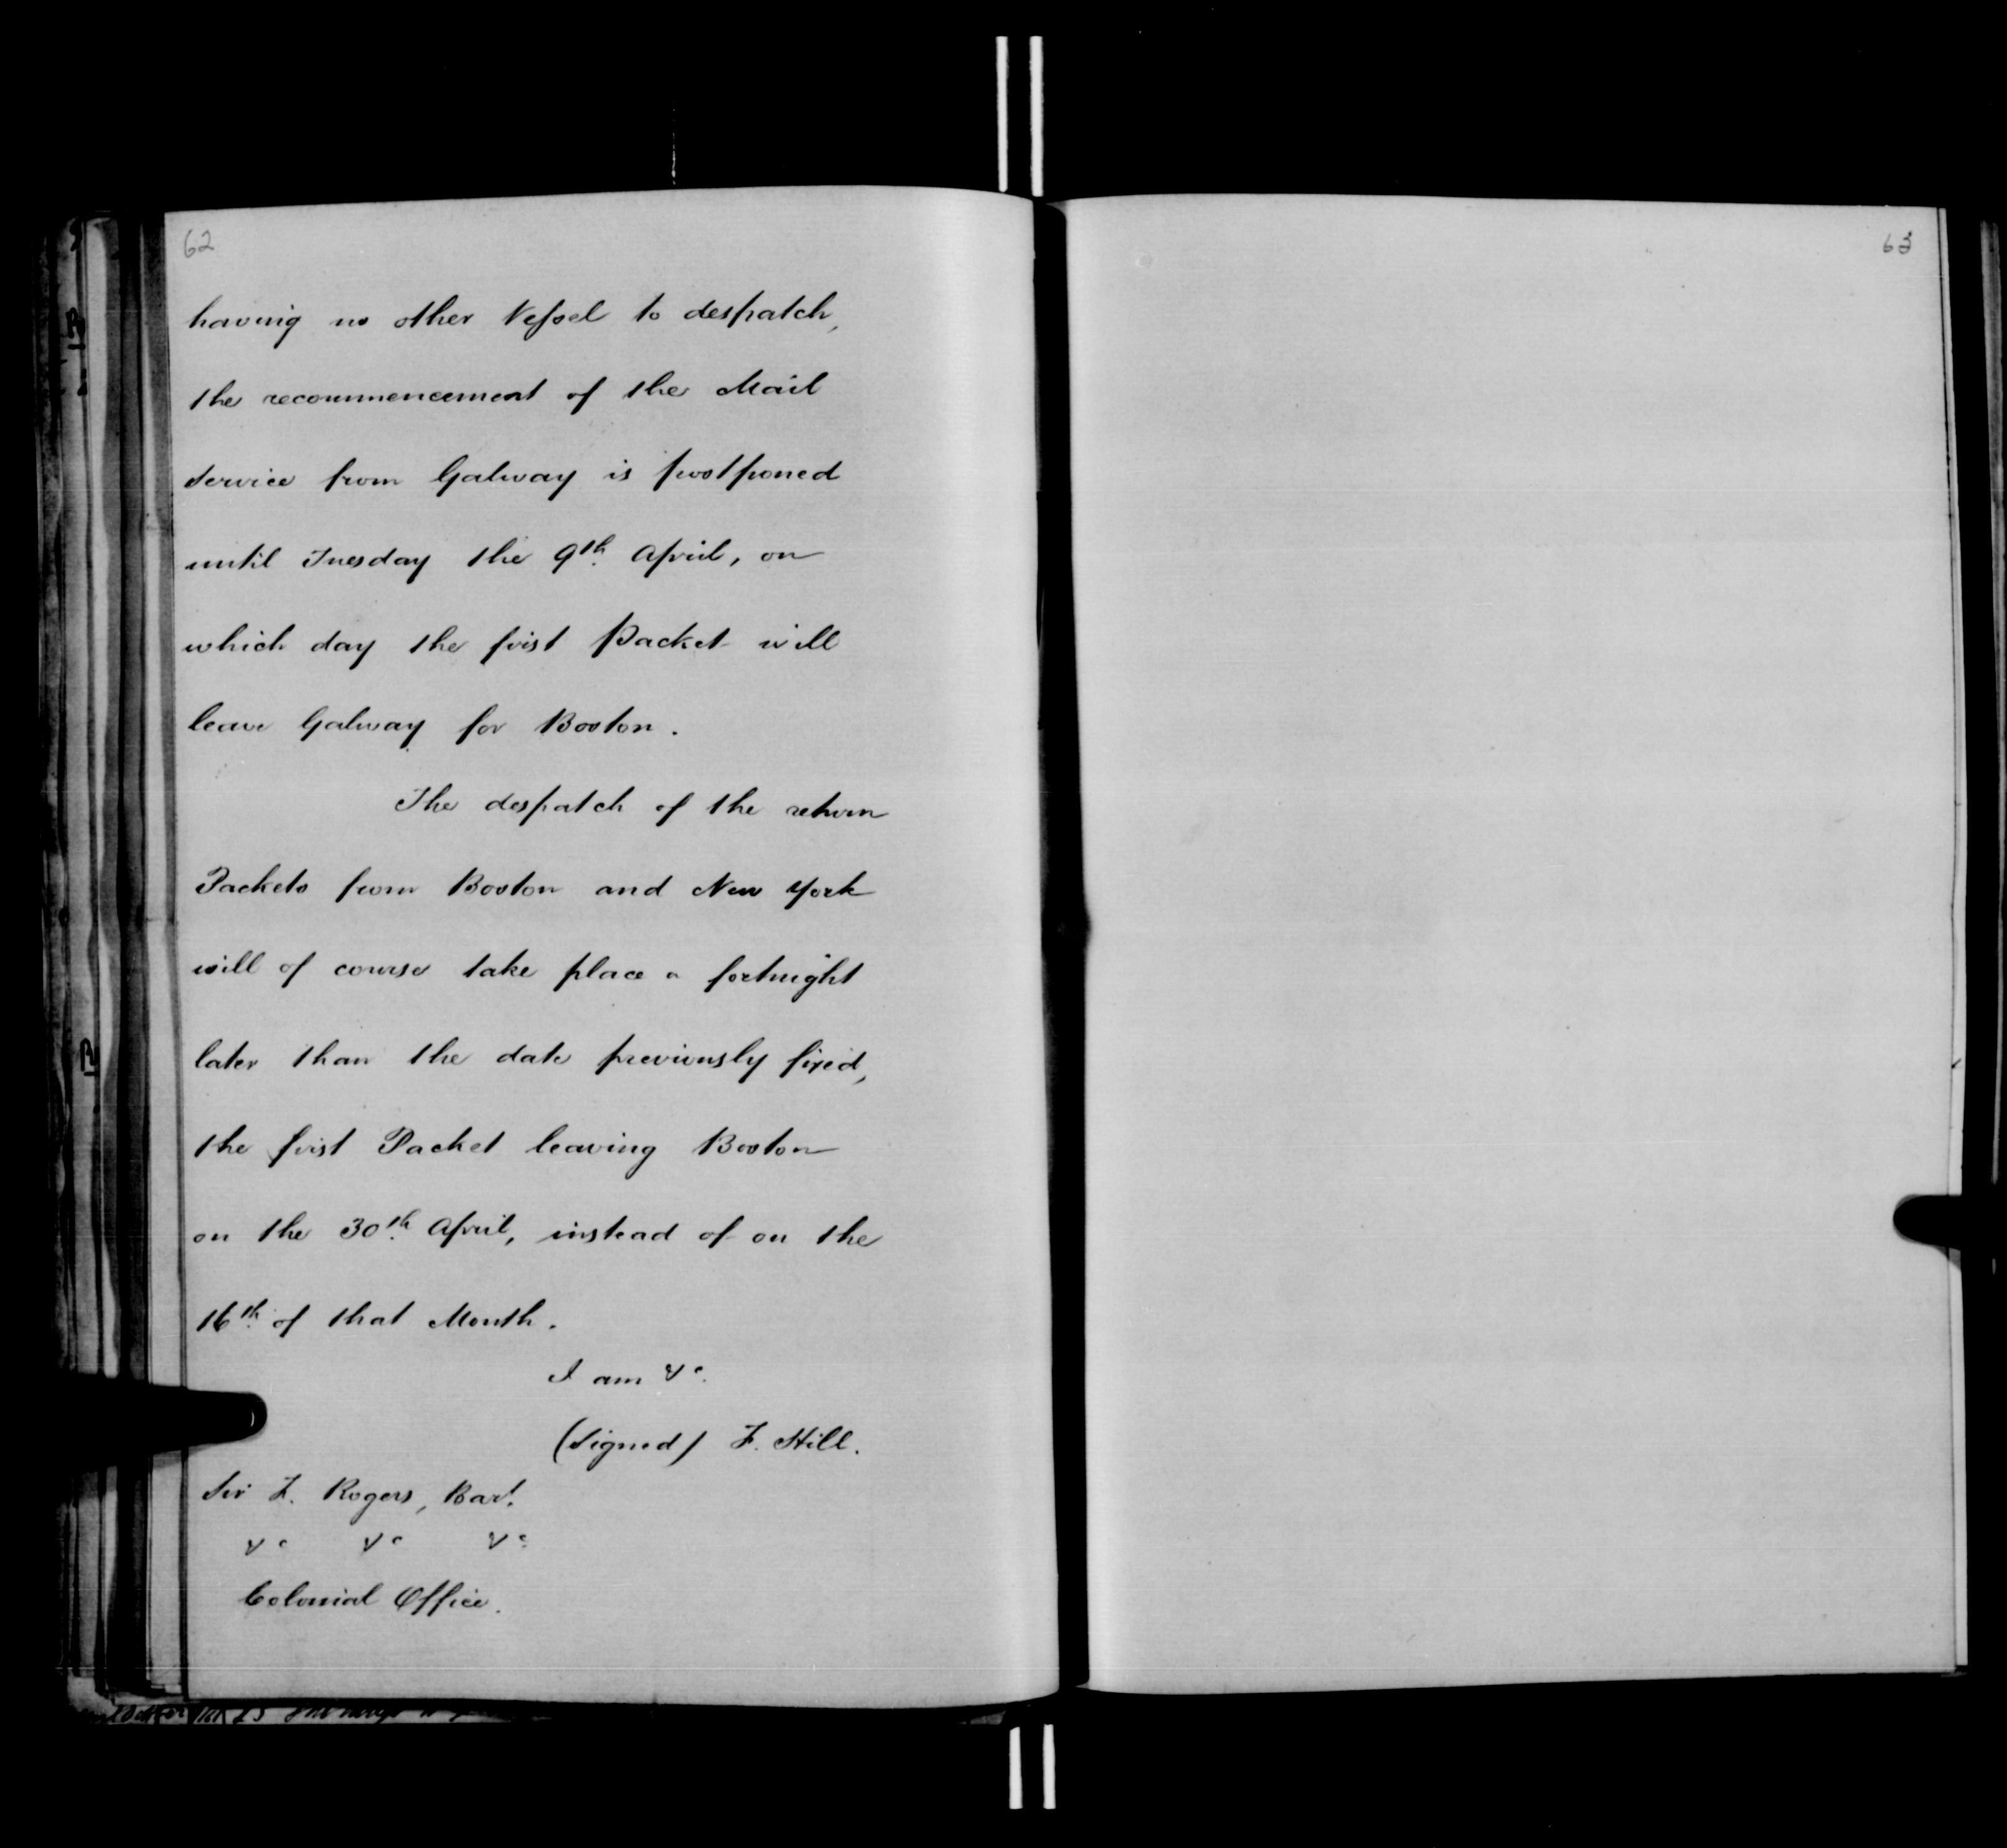 62
having no other Vessel to despatch,
the recommencement of the Mail
Service from Galway is postponed
until Tuesday the 9th. April, on
which day the first Packet will
leave Galway for Boston.
The despatch of the return
Packets from Boston and New York
will of course take place a fortnight
later than the date previously fixed,
the first Packet leaving Boston
on the 30th. April, instead of on the
16th. of that Month.
I am &c.
(Signed) F. Hill.
Sir F. Rogers, Bart.
&c &c &c
Colonial Office.
63